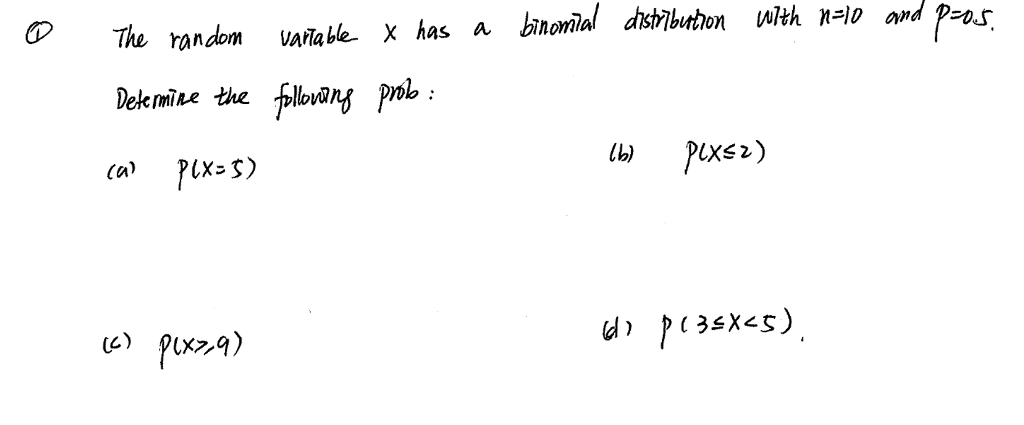 ① The random variable X has a binomial distribution with n=10 and p=0.5.
Determine the following prob:
(a) P(X=5) (b) P(X≤2)
(c) P(X≥9) (d) P(3≤X<5).